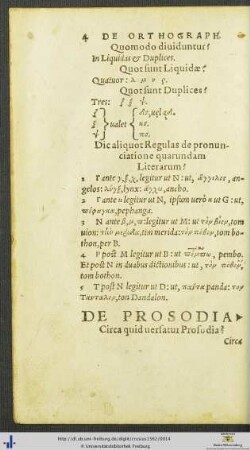 4 DE ORTHOGRAPH.
Quomodo diuiduntur?
In Liquidas & Duplices.
Quot sunt Liquidæ?
Quatuor: λ μ ν ρ.
Quot sunt Duplices?
Tres: ζ ξ ψ.
ζ
ξ ualet κσ.
ψ πσ.
Dic aliquot Regulas de pronun-
ciatione quarundam
Literarum?
1 Γ ante γ, ξ, χ, legitur ut N: ut, ἄγγελος, an-
gelos: λύγξ, lynx: ἄγχω, ancho.
2 Γ ante κ legitur ut N, ipsum uerò κ ut G: ut,
pephanga.
3 N ante β, μ, π legitur ut M: ut τὸν tom
uion: tim merida: tom bo-
thon, per B.
4 Π post M legitur ut B: ut pembo.
Et post N in duabus dictionibus: ut,
tom bothon.
5 T post N legitur ut D: ut, πάντα panda: τὸν
ton Dandalon.
DE PROSODIA
Circa quid uersatur Prosodia?
Circa
http://dl.ub.uni-freiburg.de/diglit/
© Universitätsbibliothek Freiburg